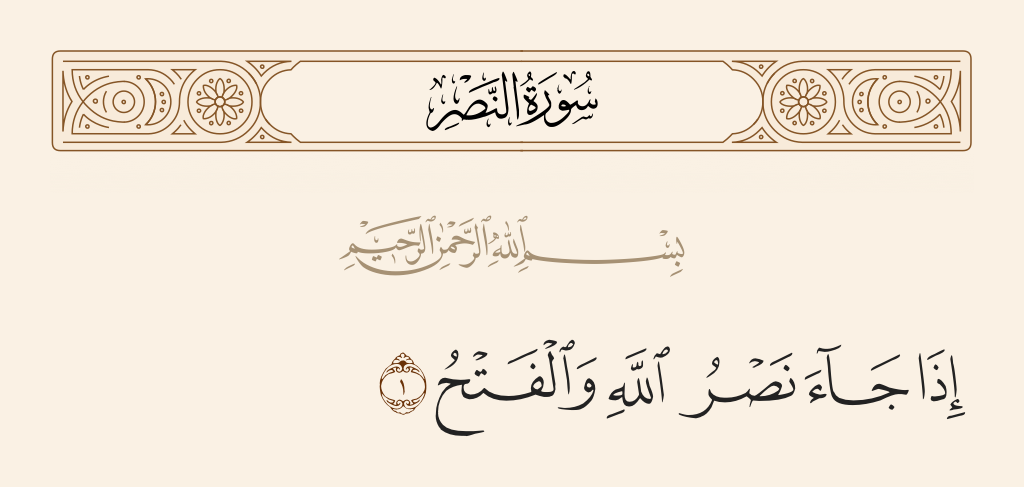 سُورَةُ النَّصْرِ
بِسْمِ ٱللَّهِ ٱلرَّحْمَٰنِ ٱلرَّحِيمِ
إِذَا جَآءَ نَصْرُ ٱللَّهِ وَٱلْفَتْحُ ١